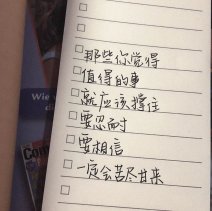 那些你觉得
值得的事
就应该撑住
要忍耐
要相信
一定会苦尽甘来
Wie